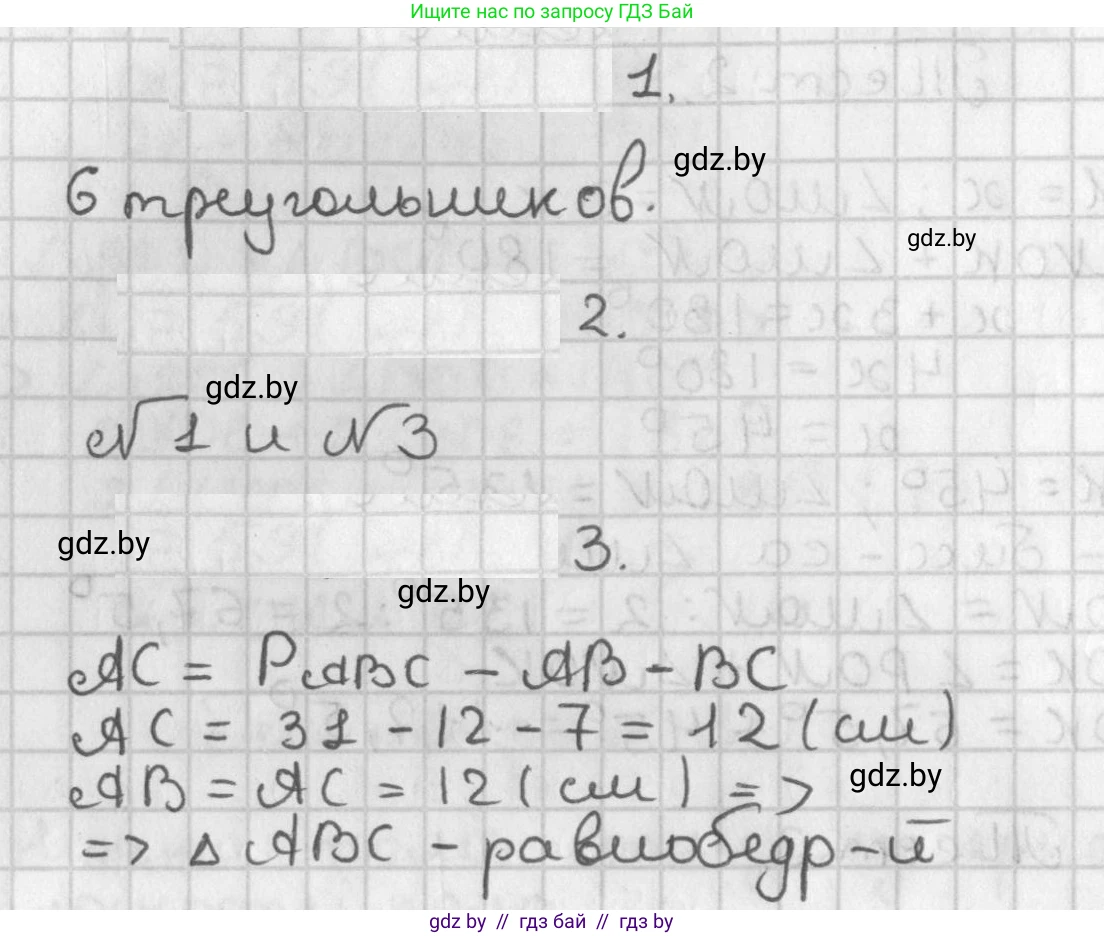 Ищите нас по запросу ГДЗ Бай
1.
gdz.by
6 треугольников.
gdz.by
2.
gdz.by
№1 и №3
3.
gdz.by
gdz.by
AC = PABC - AB - BC
AC = 31 - 12 - 7 = 12 (см)
AB = AC = 12 (см) =>
gdz.by
=> Δ ABC - равнобедр-й
gdz.by // гдз бай // гдз by